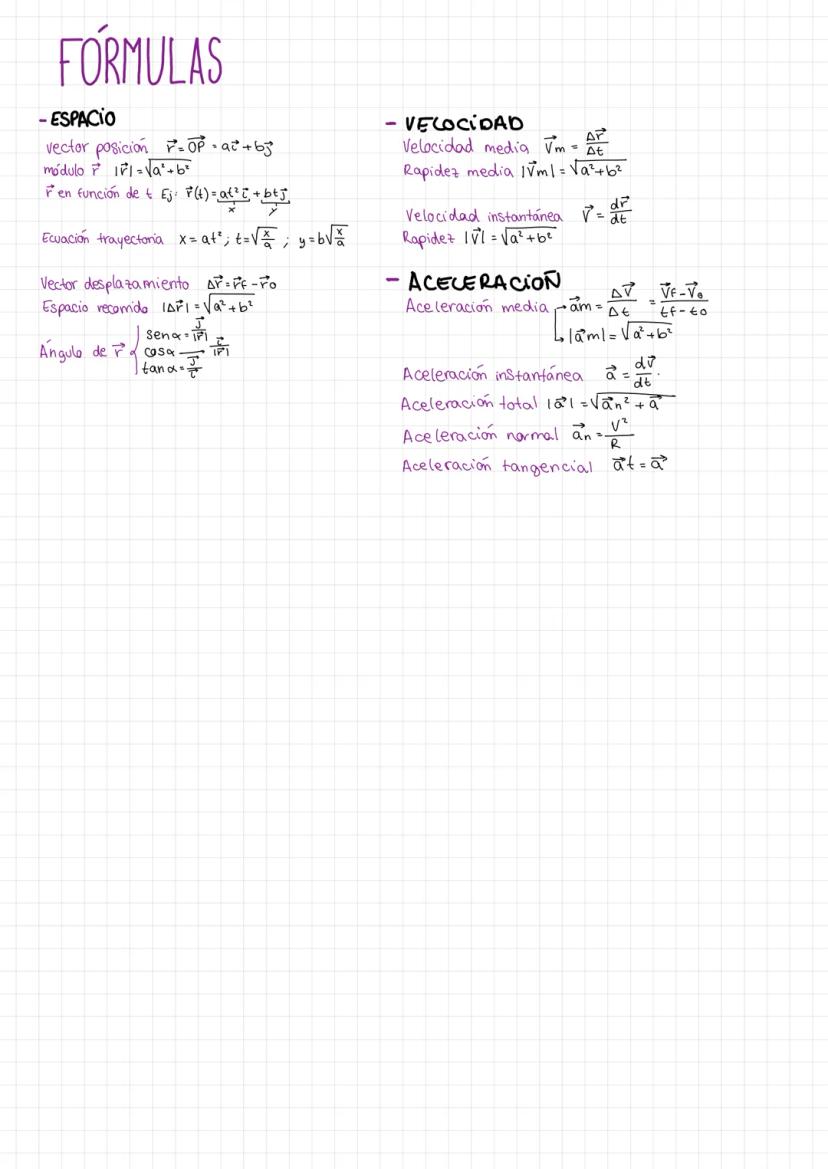 FÓRMULAS
- ESPACIO
vector posición r⃗ = OP⃗ = ai⃗ + bj⃗
módulo r⃗ |r⃗| = √a² + b²
r⃗ en función de t Ej: r⃗(t) = at² i⃗ + bt j⃗
x y
Ecuación trayectoria x = at² ; t = √x/a ; y = b√x/a
Vector desplazamiento Δr⃗ = r⃗f - r⃗o
Espacio recorrido |Δr⃗| = √a² + b²
Ángulo de r⃗
sen α = j⃗/|r⃗|
cos α — i⃗/|r⃗|
tan α = j⃗/i⃗
- VELOCIDAD
Velocidad media V⃗m = Δr⃗/Δt
Rapidez media |V⃗m| = √a² + b²
Velocidad instantánea V⃗ = dr⃗/dt
Rapidez |V⃗| = √a² + b²
- ACELERACIÓN
Aceleración media → a⃗m = ΔV⃗/Δt = V⃗f - V⃗o/tf - to
↳ |a⃗m| = √a² + b²
Aceleración instantánea a⃗ = dv⃗/dt.
Aceleración total |a⃗| = √a⃗n² + a⃗
Aceleración normal a⃗n = V²/R
Aceleración tangencial a⃗t = a⃗